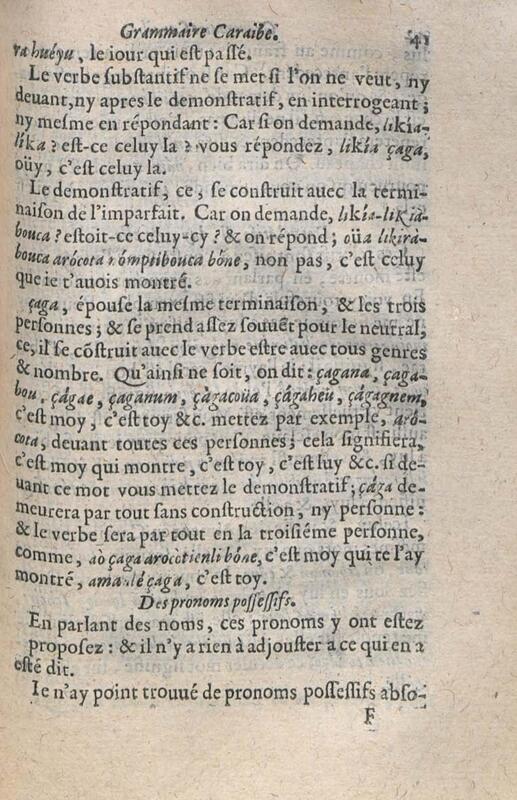 Grammaire Caraibe. 41
ra huéyu, le iour qui est passé.
Le verbe substantif ne se met si l'on ne veut, ny
deuant, ny apres le demonstratif, en interrogeant;
ny mesme en répondant: Car si on demande, likía-
líka? est-ce celuy la? vous répondez, likía çaga,
oüy, c'est celuy la.
Le demonstratif, ce, se construit auec la termi-
naison de l'imparfait. Car on demande, likía-likiá-
bouca? estoit-ce celuy-cy? & on répond; oüa likirà-
bouca arócota nómptibouca bóne, non pas, c'est celuy
que ie t'auois montré.
çaga, épouse la mesme terminaison, & les trois
personnes; & se prend assez souuẽt pour le neutral,
ce, il se cõstruit auec le verbe estre auec tous genres
& nombre. Qu'ainsi ne soit, on dit: çagana, çaga-
bou, çágae, çaganum, çàgacoüa, çágaheu, çágagnem,
c'est moy, c'est toy &c. mettez par exemple, aró-
cota, deuant toutes ces personnes; cela signifiera,
c'est moy qui montre, c'est toy, c'est luy &c. si de-
uant ce mot vous mettez le demonstratif; çága de-
meurera par tout sans construction, ny personne:
& le verbe sera par tout en la troisiéme personne,
comme, aò çaga arocòtienli bóne, c'est moy qui te l'ay
montré, çaga, c'est toy.
Des pronoms possessifs.
En parlant des noms, ces pronoms y ont estez
proposez: & il n'y a rien à adjouster a ce qui en a
esté dit.
Ie n'ay point trouué de pronoms possessifs abso-
F